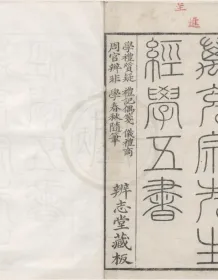 萬充宗先生
經學五書
學禮質疑 禮記偶箋 儀禮商
周官辨非 學春秋隨筆
辨志堂藏板